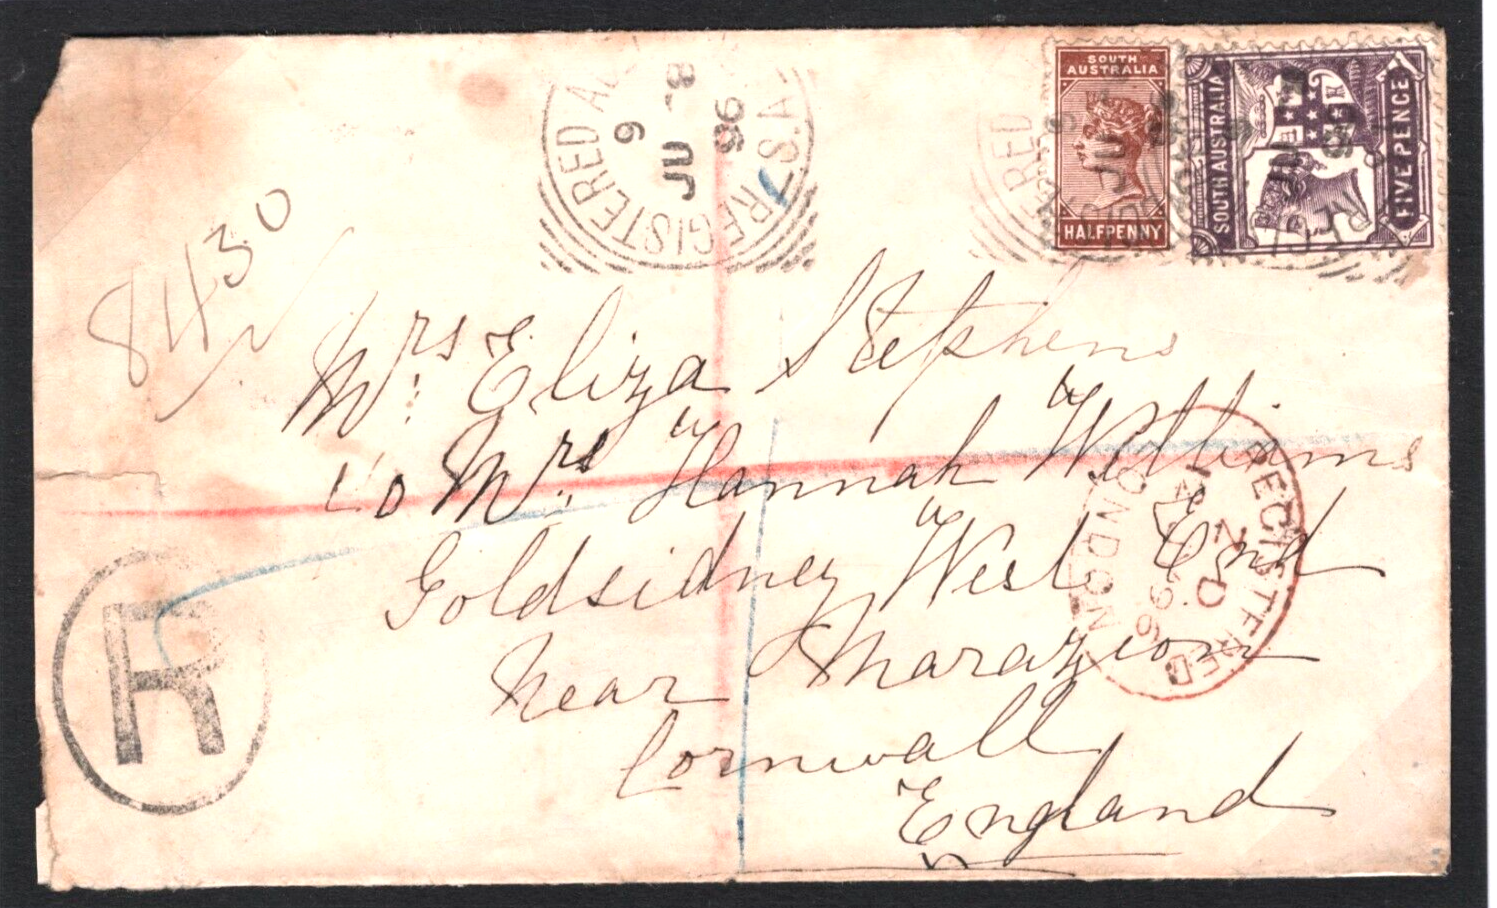 REGISTERED AD
8
JU
96
6
S.A.
REGISTE
SOUTH
AUSTRALIA
HALFPENNY
SOUTH AUSTRALIA
FIVE PENCE
8430
Mrs Eliza Stephens
Co Mrs Hannah Williams
Goldsidney West End
Near Marazion
Cornwall
England
REGISTERED
LONDON
96
R